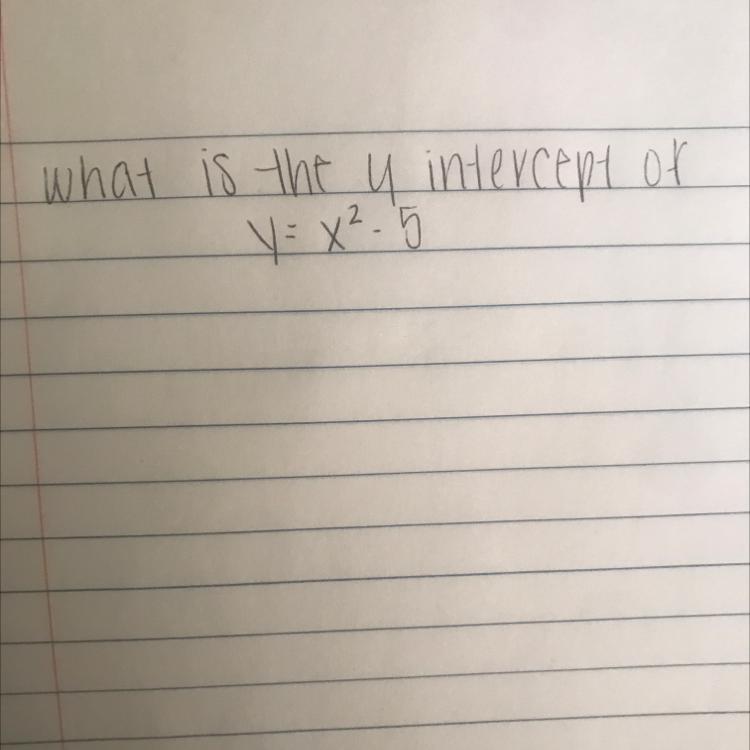 what is the y intercept of
y = x² - 5